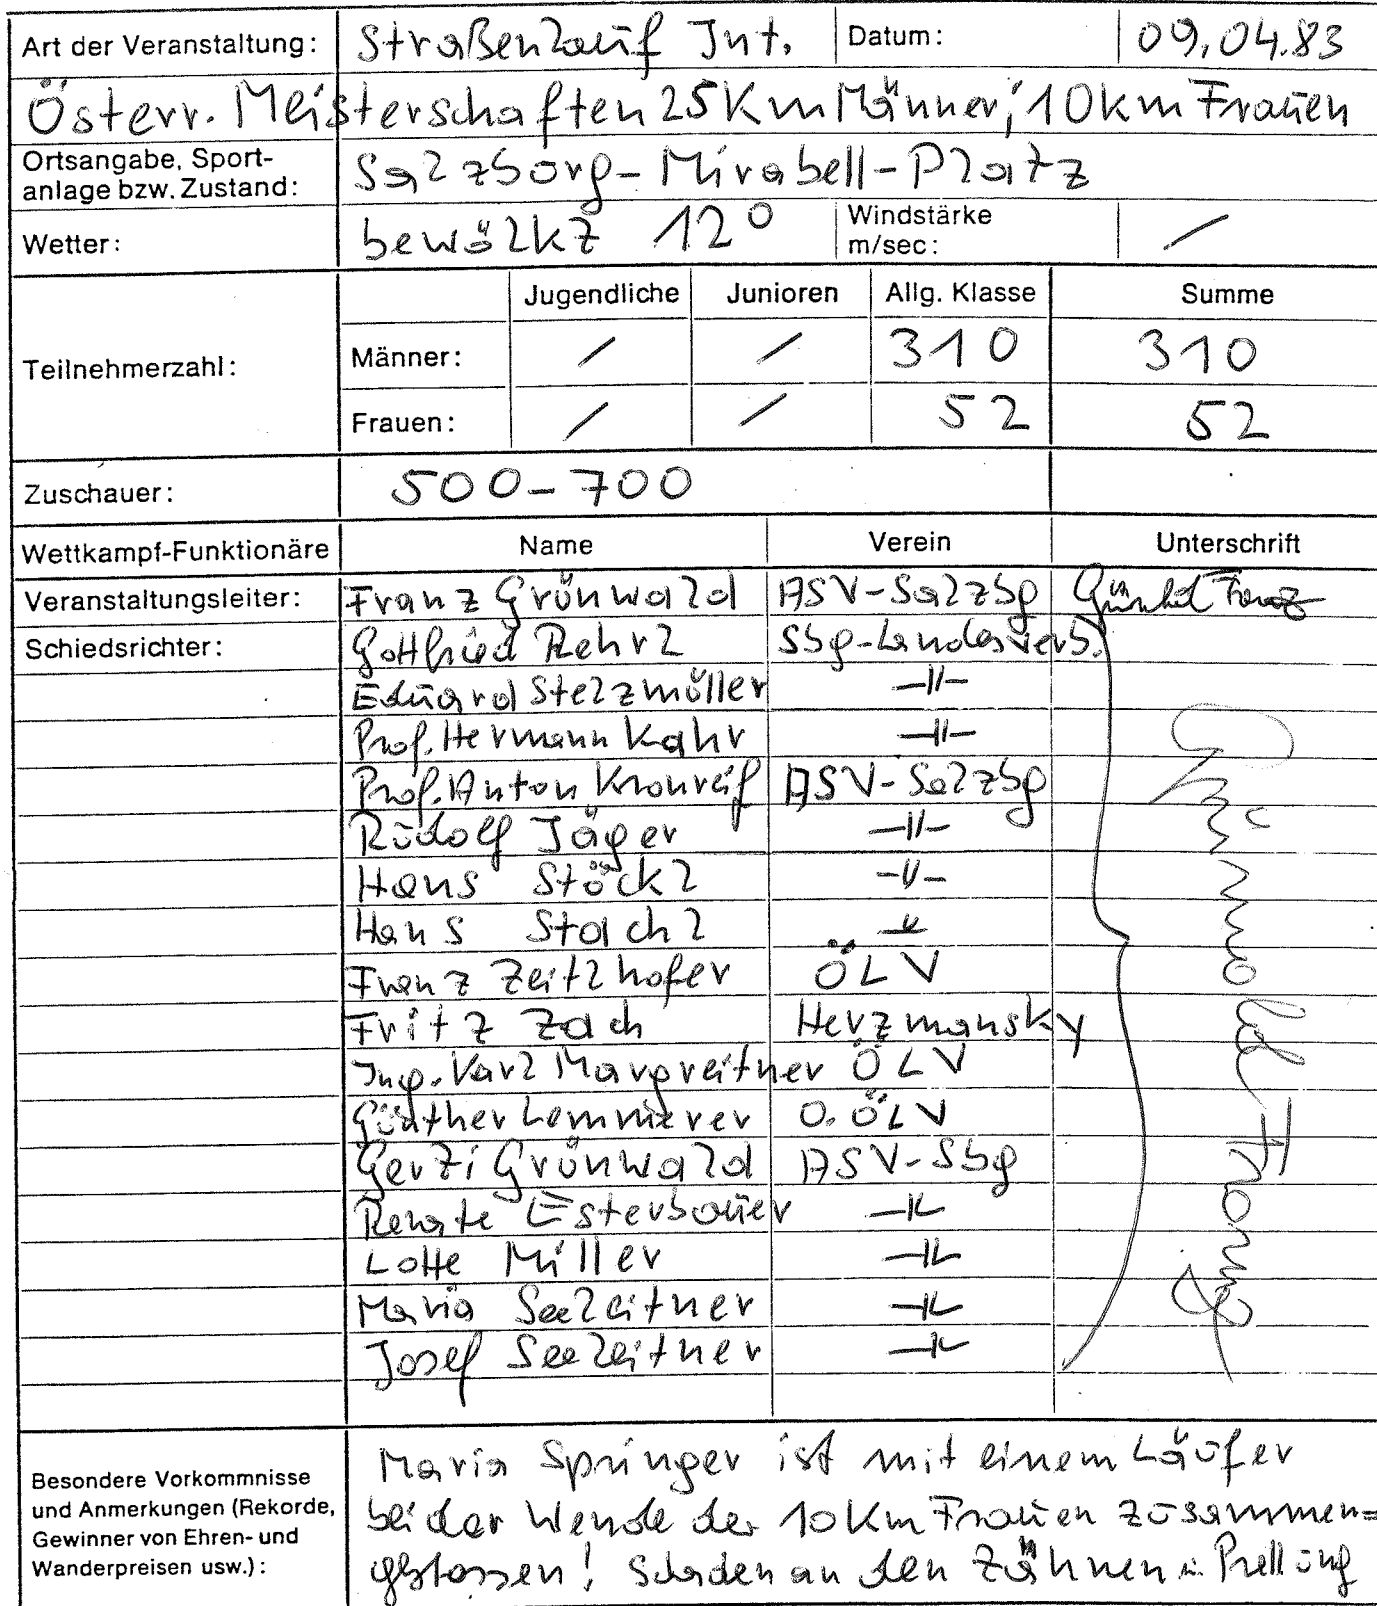 Art der Veranstaltung: Straßenlauf Int. Datum: 09.04.83
Österr. Meisterschaften 25Km Männer; 10km Frauen
Ortsangabe, Sport-
anlage bzw. Zustand: Salzburg-Mirabell-Platz
Wetter: bewölkt 12° Windstärke
m/sec: /
Jugendliche Junioren Allg. Klasse Summe
Teilnehmerzahl: Männer: / / 310 310
Frauen: / / 52 52
Zuschauer: 500-700
Wettkampf-Funktionäre Name Verein Unterschrift
Veranstaltungsleiter: Franz Grünwald ASV-Salzbg Grünwald Franz
Schiedsrichter: Gottfried Rehrl Sbg-Landesverb.
Eduard Stelzmüller -||-
Prof. Hermann Kahr -||-
Prof. Anton Kronreif ASV-Salzbg
Rudolf Jäger -||-
Hans Stöckl -||-
Hans Stachl -||-
Franz Zeitlhofer ÖLV
Fritz Zach Herzmansky
Ing. Karl Margreitner ÖLV
Günther Lemmerer O.ÖLV
Gerti Grünwald ASV-Sbg
Renate Esterbauer -||-
Lotte Miller -||-
Maria Seeleitner -||-
Josef Seeleitner -||-
Grünwald Franz
Besondere Vorkommnisse
und Anmerkungen (Rekorde,
Gewinner von Ehren- und
Wanderpreisen usw.):
Maria Springer ist mit einem Läufer
bei der Wende der 10Km Frauen zusammen=
gestossen! Schaden an den Zähnen u. Prellung